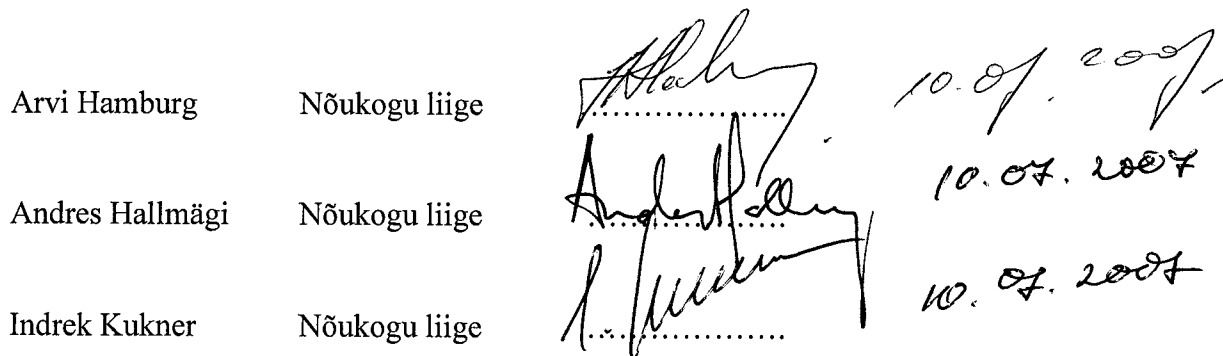 Arvi Hamburg Nõukogu liige 10.07.2007.
Andres Hallmägi Nõukogu liige Andres Hallmägi 10.07.2007
Indrek Kukner Nõukogu liige 10.07.2007